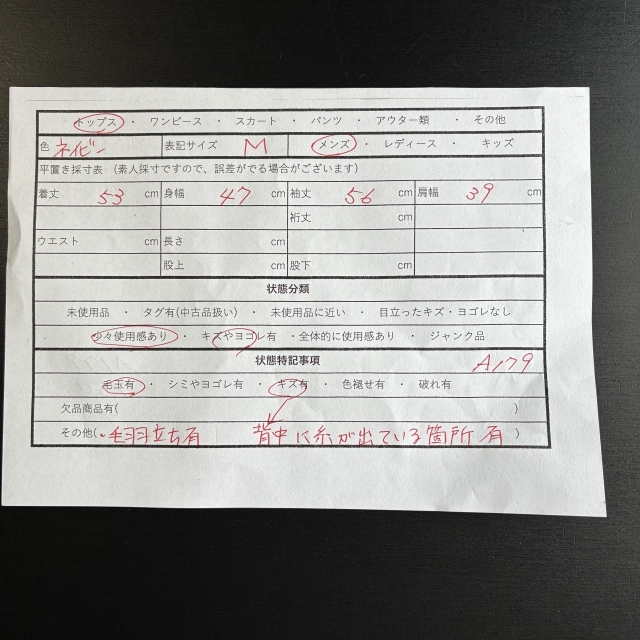 トップス ・ ワンピース ・ スカート ・ パンツ ・ アウター類 ・ その他
色 ネイビー 表記サイズ M メンズ ・ レディース ・ キッズ
平置き採寸表 (素人採寸ですので、誤差がでる場合がございます)
着丈 53 cm 身幅 47 cm 袖丈 56 cm 肩幅 39 cm
裄丈 cm
ウエスト cm 長さ cm
股上 cm 股下 cm
状態分類
未使用品 ・ タグ有(中古品扱い) ・ 未使用品に近い ・ 目立ったキズ・ヨゴレなし
少々使用感あり ・ キズやヨゴレ有 ・全体的に使用感あり ・ ジャンク品
状態特記事項 A179
毛玉有 ・ シミやヨゴレ有 ・ キズ有 ・ 色褪せ有 ・ 破れ有
欠品商品有( )
その他(・毛羽立ち有 背中に糸が出ている箇所有 )